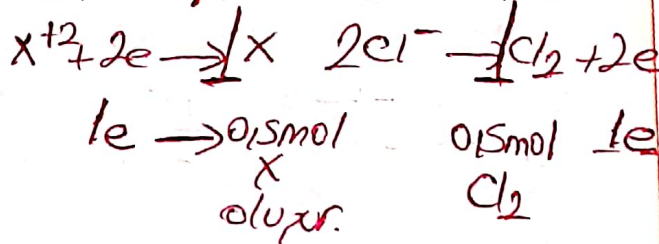 x⁺²+2e → 1x 2Cl⁻ → 1Cl₂ + 2e
1e → 0,5mol 0,5mol 1e
x Cl₂
oluşur.